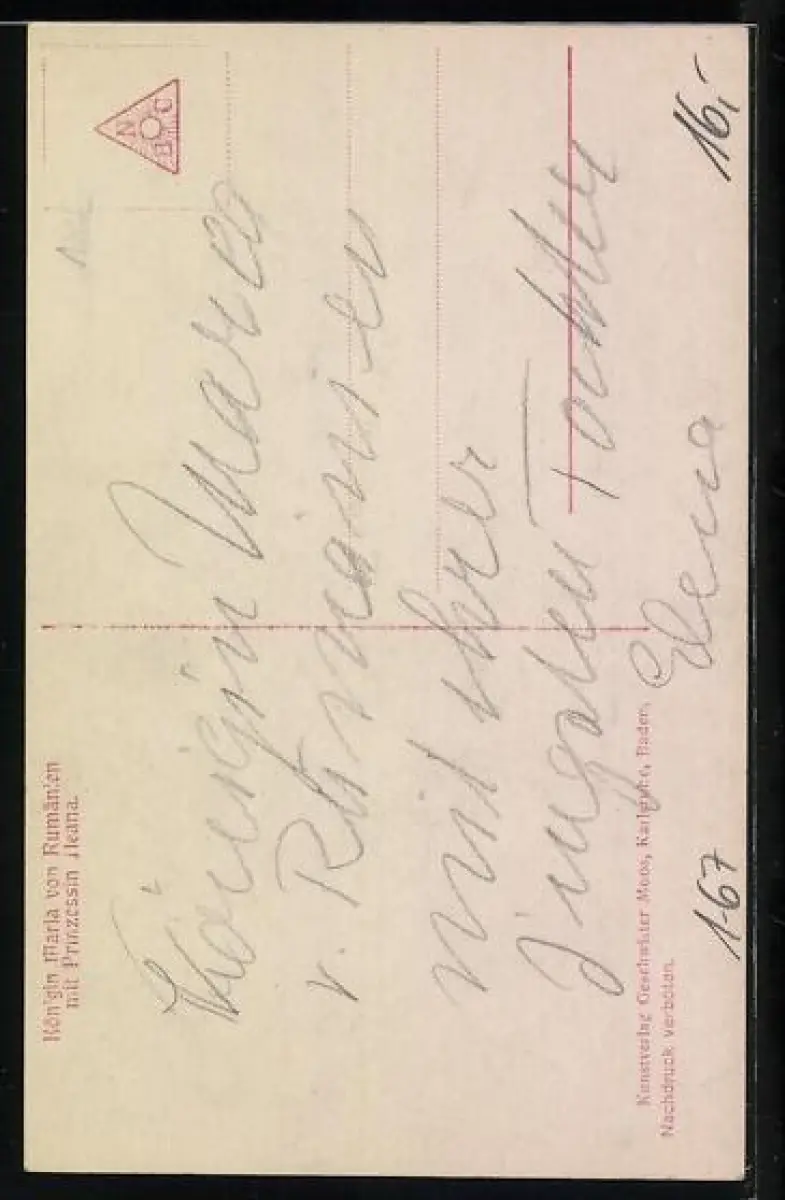 Königin Maria von Rumänien
mit Prinzessin Ileana.
NBC
Königin Maria
v. Rumänien
mit ihrer
jungsten Tochter
Elena
Kunstverlag Geschwister Moos, Karlsruhe, Baden.
Nachdruck verboten.
1-67
16,-